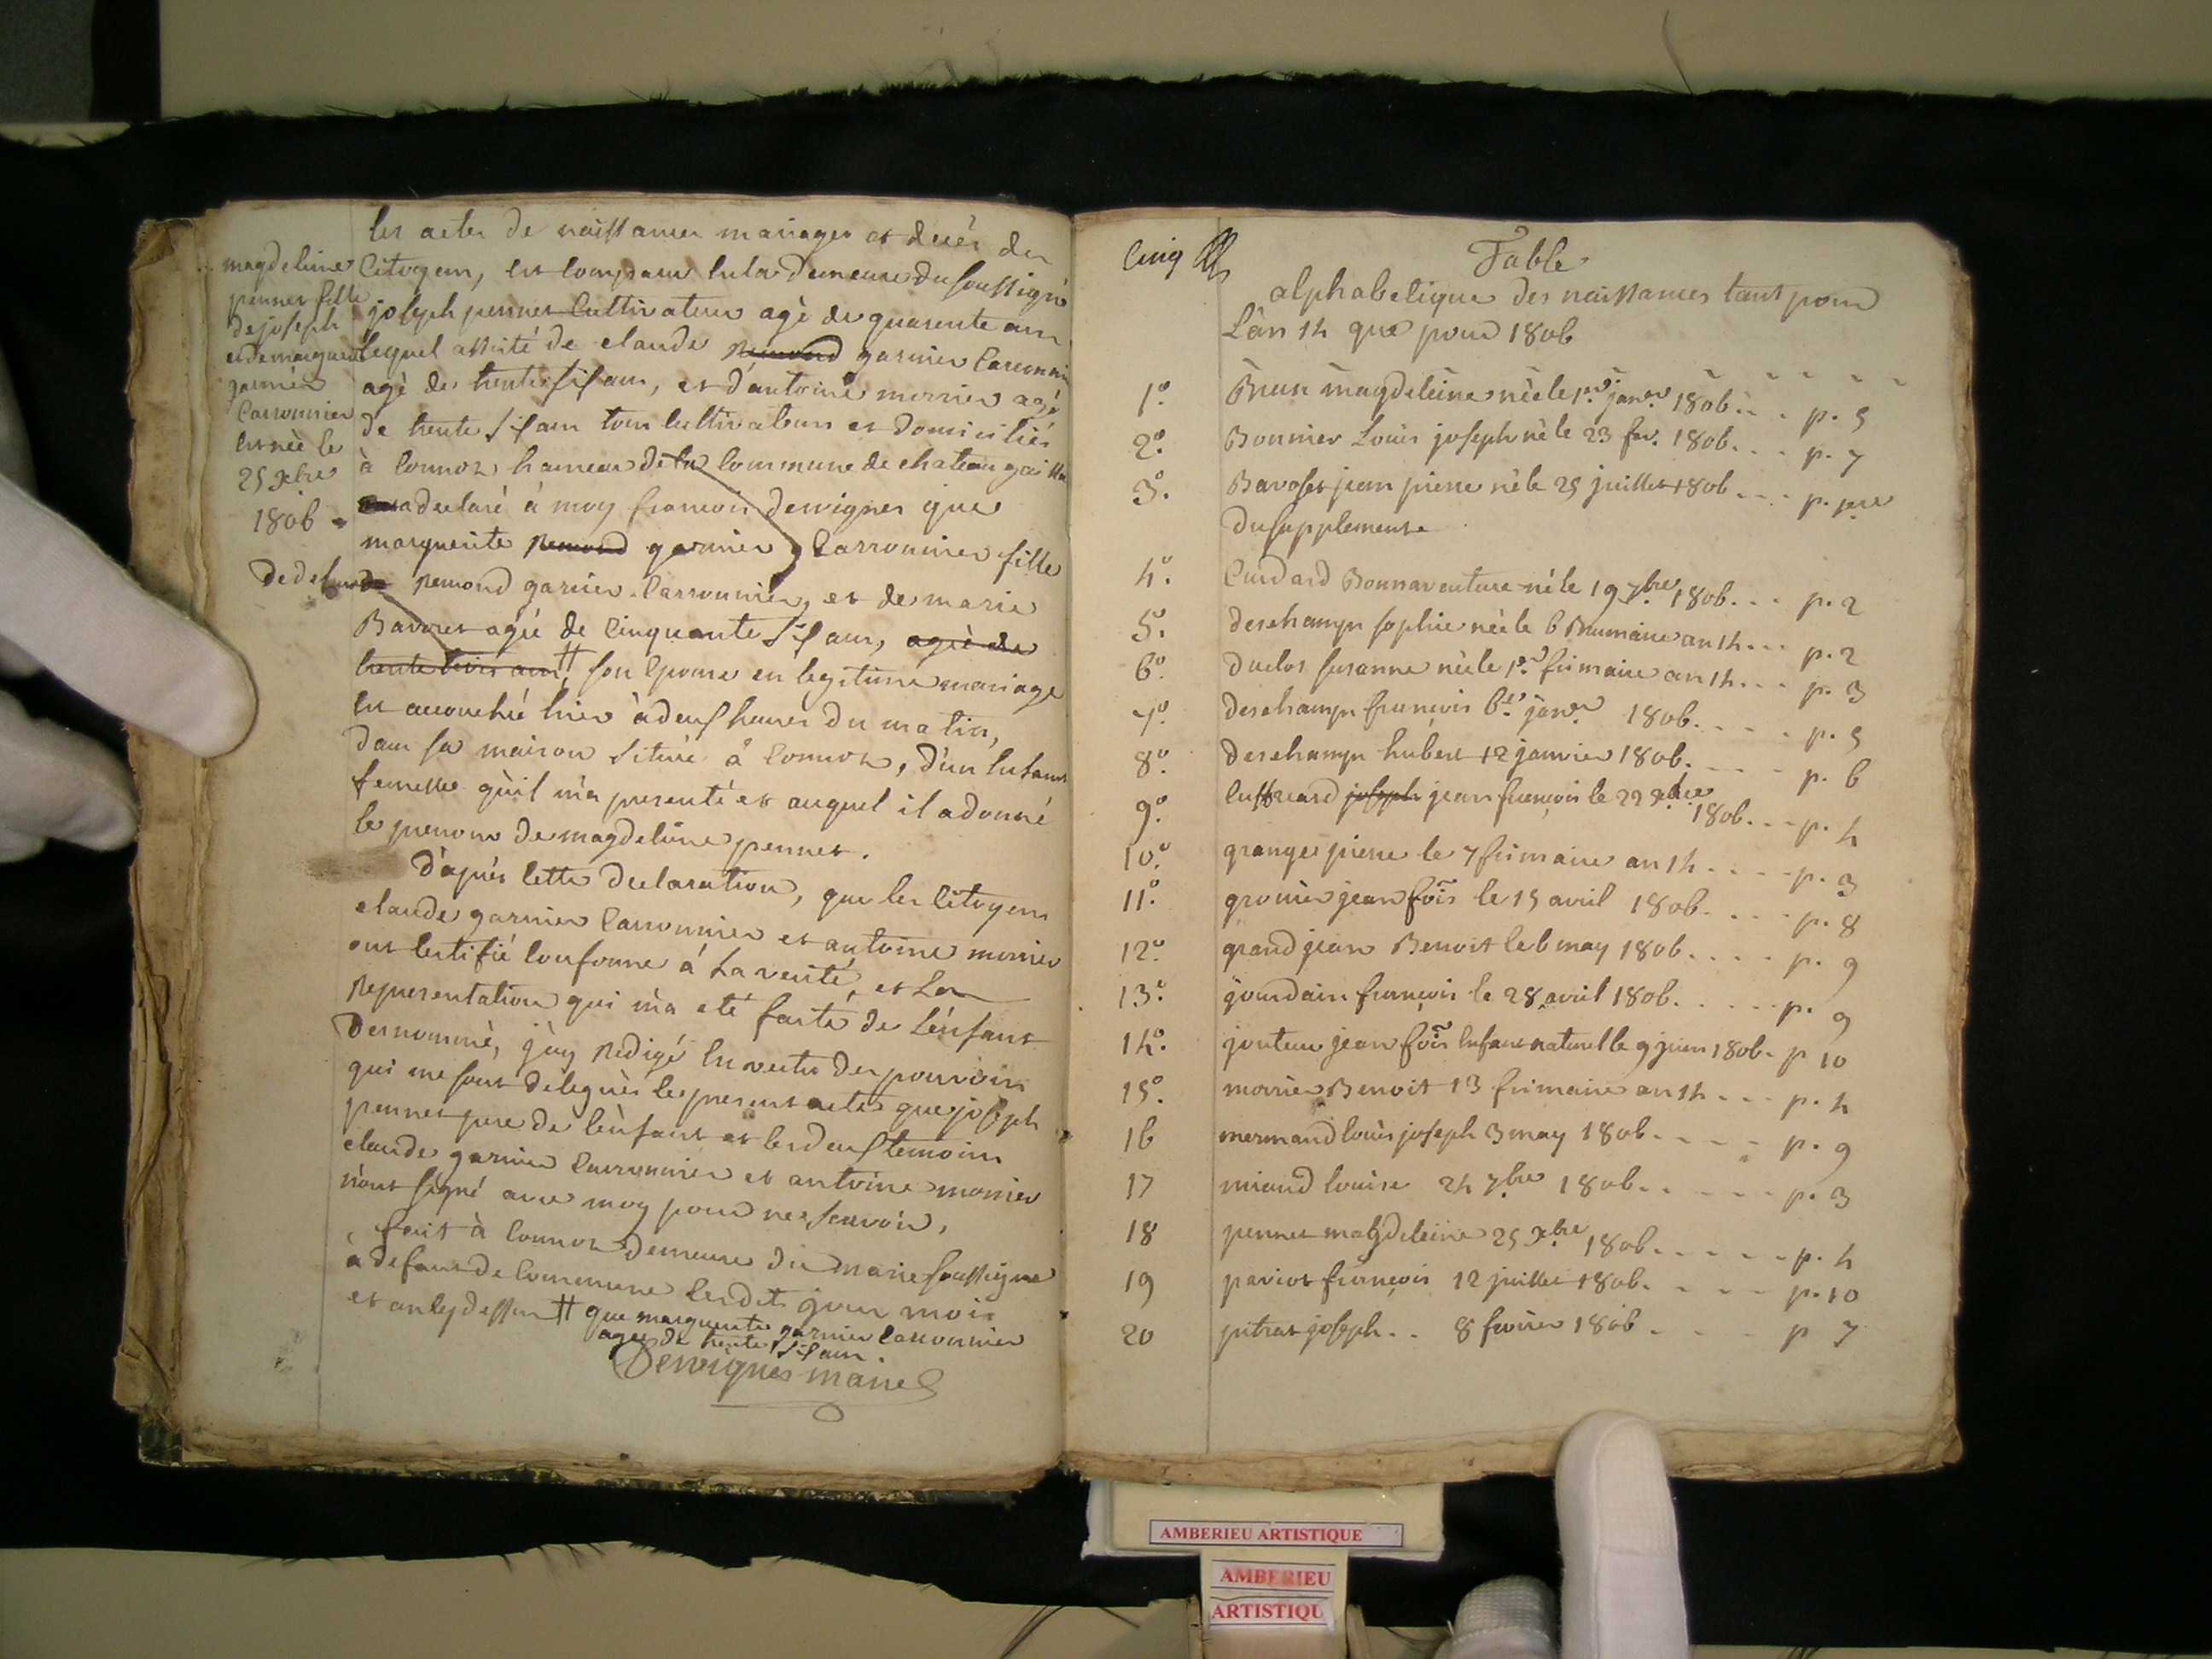 les actes de naissances mariages et decés des
Citoyens, est comparu en la demeure du soussigné
joseph pennet Cultivateur agé de quarente ans
lequel assisté de claude remond garnier Carronnier
agé de trente six ans, et d'antoine monier agé
de trente six ans tous cultivateurs et domiciliés
à Cormoz hameau de la Commune de chateau gaillard
a declaré à moy françois dervignes que
marguerite remond garnier Carronnier fille
de defunt remond garnier Carronnier, et de marie
Bavozet agée de Cinquante six ans, agée de
trente trois ans # son Epouse en legitime mariage
est accouchée hier à deux heures du matin,
dans sa maison située à Cormoz, d'un Enfant
femelle qu'il m'a presenté et auquel il a donné
le prenom de magdeleine pennet.
D'après cette declaration, que les Citoyens
claude garnier Carronnier et antoine monier
ont certifié conforme à La verité, et La
representation qui m'a eté faite de L'enfant
denommé, j'ay redigé En vertu des pouvoirs
qui me sont delegués le present acte que joseph
pennet pere de l'enfant et les deux temoins
claude garnier Carronnier et antoine monier
n'ont signé avec moy pour ne sçavoir,
fait à Cormoz demeure du maire soussigné
à defaut de Commune lesdits jour mois
et an cy dessus # que marguerite garnier Carronnier
agée de trente six ans
Dervignes maire
magdeleine
pennet fille
de joseph
et de marguerite
garnier
Carronnier
est née le
25 xbre
1806
Cinq
Table
alphabetique des naissances tant pour
L'an 14 que pour 1806
1º. Brun magdeleine née le 1er janer 1806. . . p. 5
2º. Bonnier Louis joseph né le 23 fer. 1806. . . p. 7
3º. Bavozet jean pierre né le 25 juillet 1806. . . p. 1ere
du supplement
4º. Cuidard Bonnaventure né le 19 7bre 1806. . . p. 2
5º. deschamps sophie née le 6 Brumaire an 14 . . . p. 2
6º. duclos susanne née le 1er frimaire an 14. . . p. 3
7º. deschamps françois 6e janer 1806. . . . p. 5
8º. deschamps hubert 12 janvier 1806. . . . p. 6
9º. joseph jean françois le 22 xbre 1806. . . p. 4
10º. granger pierre le 7 frimaire an 14 . . . . p. 3
11º. jean fois le 15 avril 1806. . . . p. 8
12º. grand jean Benoit le 6 may 1806. . . . p. 9
13º. jourdain françois le 28 avril 1806. . . . . p. 9
14º. jean fois Enfant naturel le 9 juin 1806. p 10
15º. monier Benoit 13 frimaire an 14 . . . p. 4
16 mermand louis joseph 3 may 1806. . . . . p. 9
17 miand louise 24 7bre 1806. . . . . . p. 3
18 pennet magdeleine 25 xbre 1806. . . . . . p. 4
19 pariot françois 12 juillet 1806. . . . . p. 10
20 pitrat joseph . . 8 fevrier 1806 . . . . p 7
AMBERIEU ARTISTIQUE
AMBERIEU
ARTISTIQU